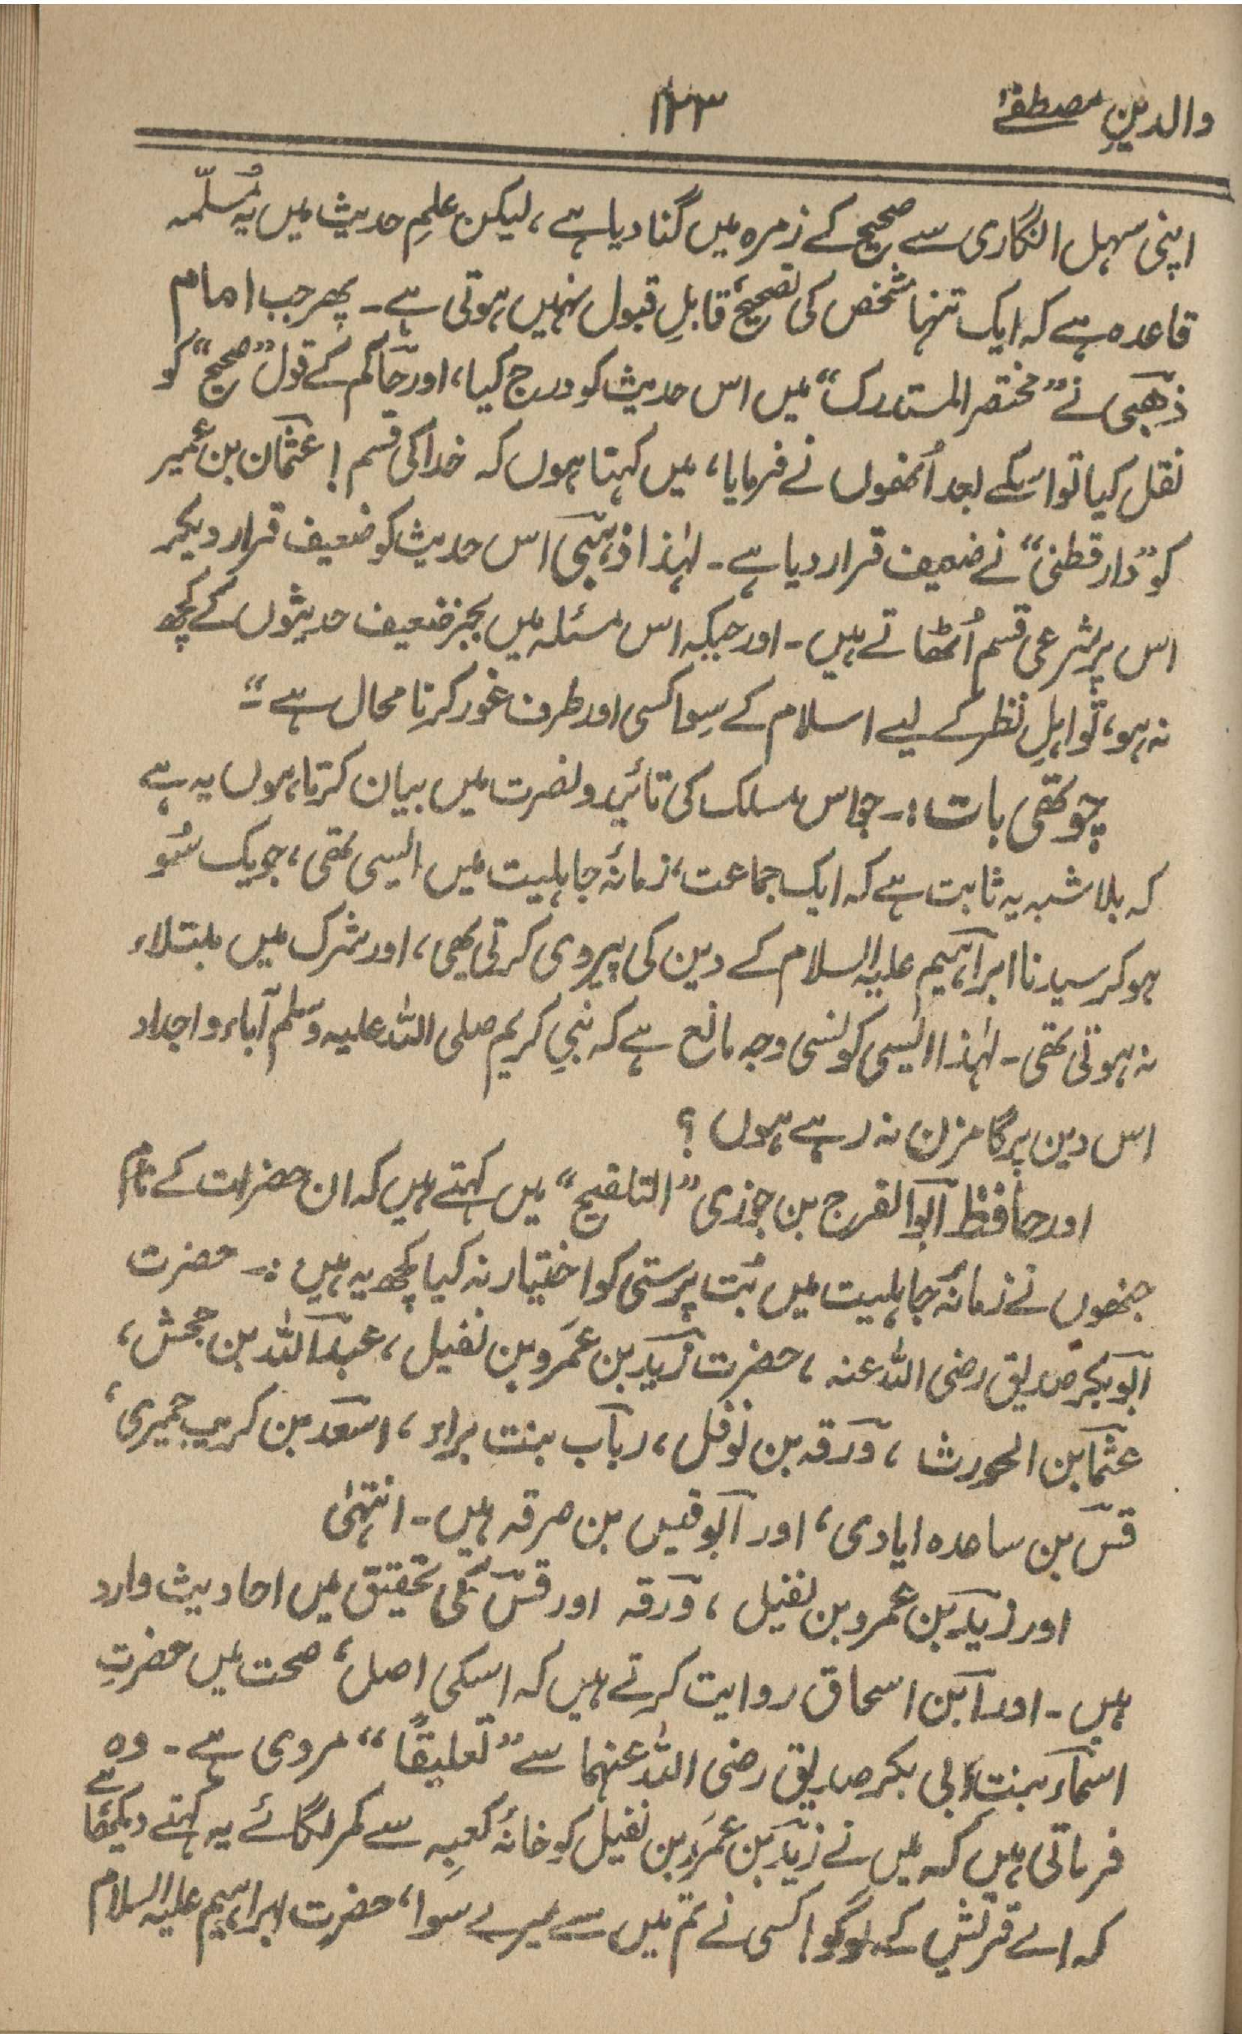 والدینِ مصطفےٰ
۱۲۳
اپنی سہل انگاری سے صحیح کے زمرہ میں گنا دیا ہے، لیکن علمِ حدیث میں یہ مُسلّمہ
قاعدہ ہے کہ ایک تنہا شخص کی تصحیح، قابلِ قبول نہیں ہوتی ہے۔ پھر جب امام
ذھبی نے ”مختصر المستدرک“ میں اس حدیث کو درج کیا، اور حاکم کے قول ”صحیح“ کو
نقل کیا تو اسکے بعد اُنھوں نے فرمایا، میں کہتا ہوں کہ خدا کی قسم! عثمان بن عمیر
کو ”دارقطنی“ نے ضعیف قرار دیا ہے۔ لہٰذا ذہبی اس حدیث کو ضعیف قرار دیکر
اس پر شرعی قسم اُٹھاتے ہیں۔ اور جبکہ اس مسئلہ میں بجز ضعیف حدیثوں کے کچھ
نہ ہو، تو اہلِ نظر کے لیے اسلام کے سِوا کسی اور طرف غور کرنا محال ہے“
چوتھی بات:۔ جو اس مسلک کی تائید و نصرت میں بیان کرتا ہوں یہ ہے
کہ بلا شبہ یہ ثابت ہے کہ ایک جماعت، زمانۂ جاہلیت میں ایسی تھی، جو یک سُو
ہو کر سیدنا ابراہیم علیہ السلام کے دین کی پیروی کرتی تھی، اور شرک میں مبتلاء
نہ ہوتی تھی۔ لہٰذا ایسی کونسی وجہ مانع ہے کہ نبیِ کریم صلی اللہ علیہ وسلم آباء و اجداد
اس دین پر گامزن نہ رہے ہوں؟
اور حافظ ابوالفرج بن جوزی ”التلقیح“ میں کہتے ہیں کہ ان حضرات کے نام
جنھوں نے زمانۂ جاہلیت میں بُت پرستی کو اختیار نہ کیا کچھ یہ ہیں:۔ حضرت
ابوبکر صدیق رضی اللہ عنہ، حضرت زید بن عمَرو بن نفیل، عبداللہ بن جحش،
عثما بن الحورث، ورقہ بن نوفل، رباب بنت براء، اسعد بن کریب حمیری،
قسّ بن ساعدہ ایادی، اور ابوقیس بن صرقہ ہیں۔ انتہٰی
اور زید بن عمرو بن نفیل، ورقہ اور قسّ کی تحقیق میں احادیث وارد
ہیں۔ اور ابن اسحاق روایت کرتے ہیں کہ اسکی اصل، صحت میں حضرتِ
اسماء بنت ابی بکر صدیق رضی اللہ عنہما سے ”تعلیقًا“ مروی ہے۔ وہ
فرماتی ہیں کہ میں نے زید بن عمَرو بن نفیل کو خانۂ کعبِہ سے کمر لگائے یہ کہتے دیکھا ہے
کہ اے قریش کے لوگو! کسی نے تم میں سے میرے سوا، حضرتِ ابراہیم علیہ السلام